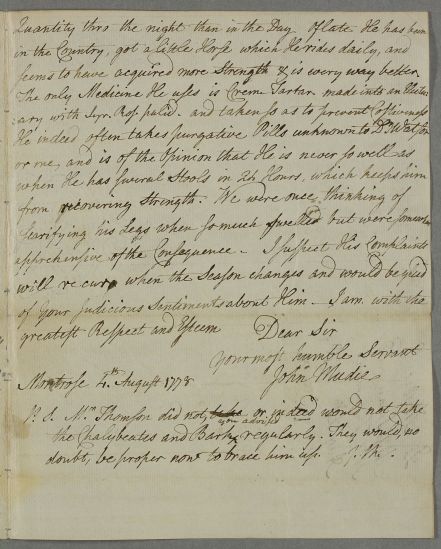 Quantity thro the night than in the Day. Of late He has been
in the Country, got a little Horse which He rides daily, and
seems to have acquired more Strength & is every way better.
The only Medicine He uses is Crem: Tartar. made into an Electu=
ary with Syr. Ros: palid. and taken so as to prevent Costiveness
He indeed often takes purgative Pills unknown to Dr. Watson
or me, and is of the Opinion that He is never so well as
when He has several Stools in 24 Hours, which keeps him
from recovering Strength. We were once thinking of
scarifying his Legs when so much swelled but were somewhat
apprehensive of the Consequence. I suspect His Complaints
will recur when the Season changes and would be glad
of your Judicious Sentiments about Him. I am with the
greatest Respect and Esteem
Dear Sir
your most humble Servant
John Mudie
Montrose 4th. August 1778
P.S. Mr. Thomson did not, or indeed would not take
you advised
the Chalybeates and Bark regularly. They would, no
doubt, be proper now to brace him up. J. M.